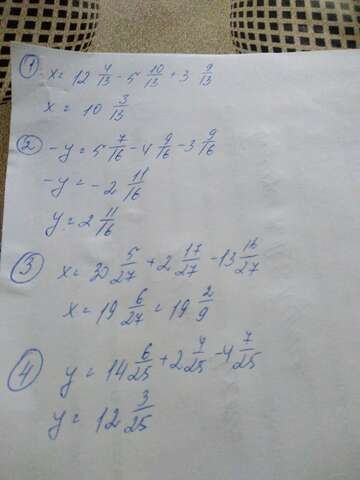 1 x = 12 4/13 - 5 10/13 + 3 9/13
x = 10 3/13
2 -y = 5 7/16 - 4 9/16 - 3 9/16
-y = -2 11/16
y = 2 11/16
3 x = 30 5/27 + 2 17/27 - 13 16/27
x = 19 6/27 = 19 2/9
4 y = 14 6/25 + 2 4/25 - 4 7/25
y = 12 3/25